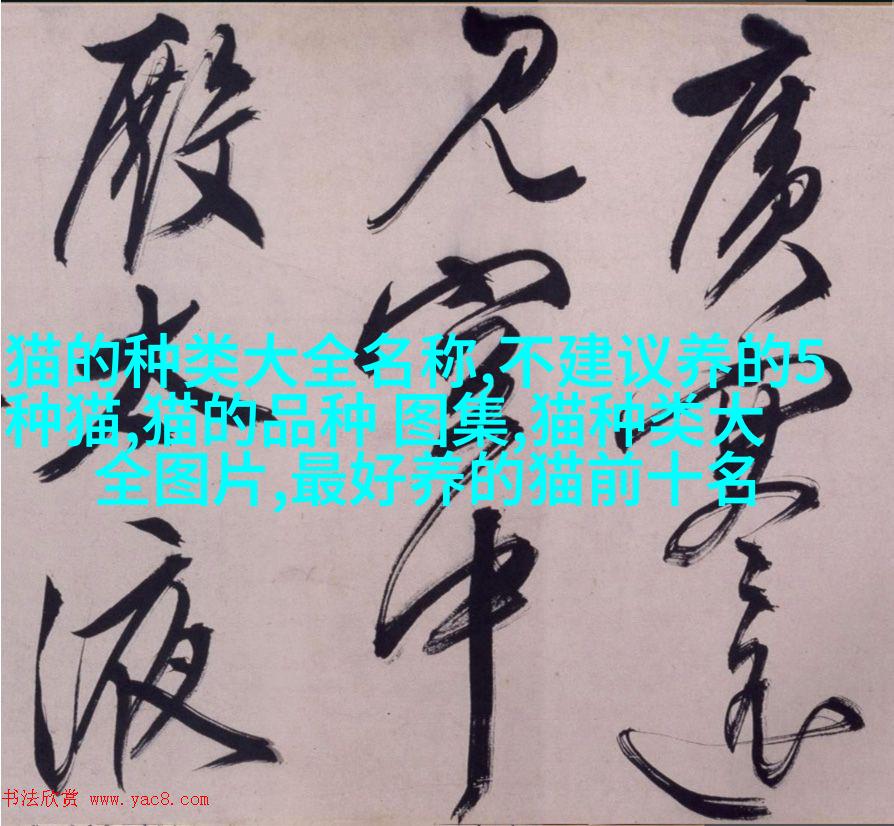 廣寒遥
见空中
殿太液
猫的种类大全名称,不建议养的5
种猫,猫的品种 图集,猫种类大
全图片,最好养的猫前十名
书法欣赏 www.yac8.com